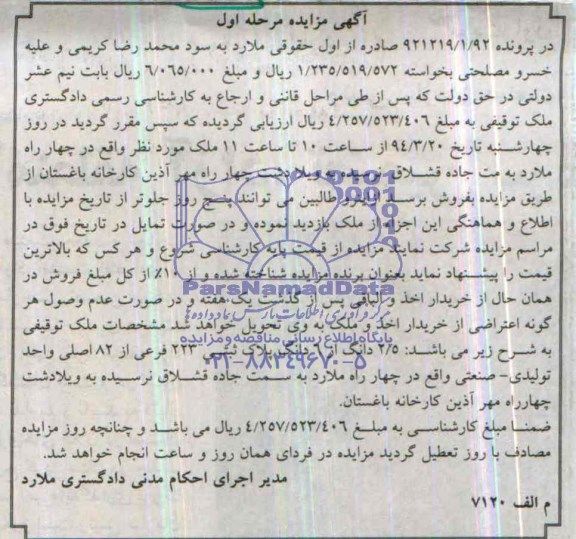 آگهی مزایده مرحله اول
در پرونده ۹۲۱۲۱۹/۱/۹۲ صادره از اول حقوقی ملارد به سود محمد رضا کریمی و علیه
خسرو مصلحتی بخواسته ۱/۲۳۵/۵۱۹/۵۷۲ ریال و مبلغ ۶/۰۶۵/۰۰۰ ریال بابت نیم عشر
دولتی در حق دولت که پس از طی مراحل قانئی و ارجاع به کارشناسی رسمی دادگستری
ملک توقیفی به مبلغ ۴/۲۵۷/۵۲۳/۴۰۶ ریال ارزیابی گردیده که سپس مقرر گردید در روز
چهارشنبه تاریخ ۹۴/۳/۲۰ از ساعت ۱۰ تا ساعت ۱۱ ملک مورد نظر واقع در چهار راه
ملارد به مت جاده قشلاق نرسیده به ویلا دشت چهار راه مهر آذین کارخانه باغستان از
طریق مزایده بفروش برسد لذا طالبین می توانند پنج روز جلوتر از تاریخ مزایده با
اطلاع و هماهنگی این اجرا از ملک بازدید نموده و در صورت تمایل در تاریخ فوق در
مراسم مزایده شرکت نمایند مزایده از قیمت پایه کارشناسی شروع و هر کس که بالاترین
قیمت را پیشنهاد نماید بعنوان برنده مزایده شناخته شده و از ۱۰٪ از کل مبلغ فروش در
همان حال از خریدار اخذ و الباقی پس از گذشت یک هفته و در صورت عدم وصول هر
گونه اعتراضی از خریدار اخذ و ملک به وی تحویل خواهد شد مشخصات ملک توقیفی
به شرح زیر می باشد: ۲/۵ دانگ از ۶ دانگ پلاک ثبتی ۲۲۳ فرعی از ۸۲ اصلی واحد
تولیدی- صنعتی واقع در چهار راه ملارد به سمت جاده قشلاق نرسیده به ویلادشت
چهارراه مهر آذین کارخانه باغستان.
ضمنا مبلغ کارشناسی به مبلغ ۴/۲۵۷/۵۲۳/۴۰۶ ریال می باشد و چنانچه روز مزایده
مصادف با روز تعطیل گردید مزایده در فردای همان روز و ساعت انجام خواهد شد.
مدیر اجرای احکام مدنی دادگستری ملارد
م الف ۷۱۲۰
ParsNamadData
مرکز فرآوری اطلاعات پارس نماد داده ها
پایگاه اطلاع رسانی مناقصه و مزایده
۰۲۱-۸۸۳۴۹۶۷۰-۵